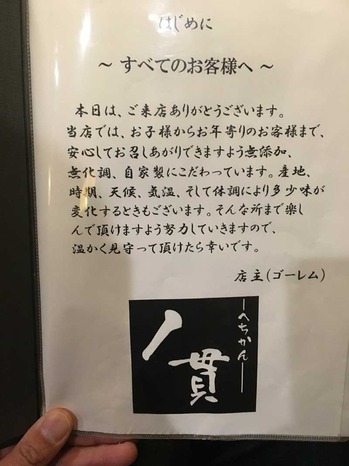 はじめに
～ すべてのお客様へ ～
本日は、ご来店ありがとうございます。
当店では、お子様からお年寄りのお客様まで、
安心してお召しあがりできますよう無添加、
無化調、自家製にこだわっています。産地、
時期、天候、気温、そして体調により多少味が
変化するときもございます。そんな所まで楽し
んで頂けますよう努力していきますので、
温かく見守って頂けたら幸いです。
店主(ゴーレム)
へちかん
貫